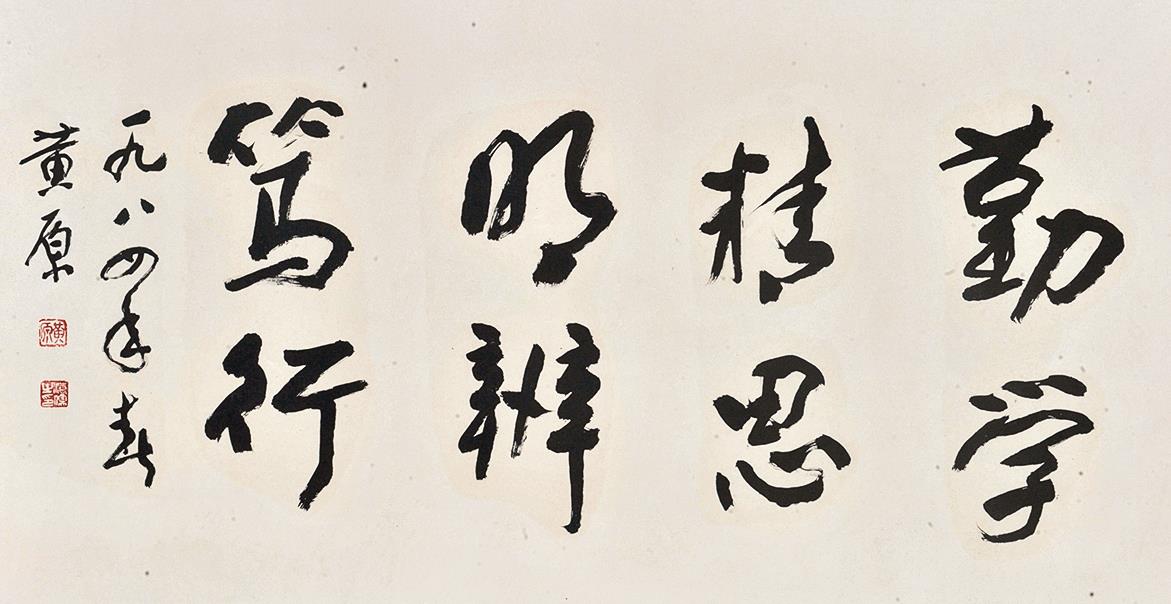 勤学
精思
明辨
笃行
一九八四年春
黄原
黄原